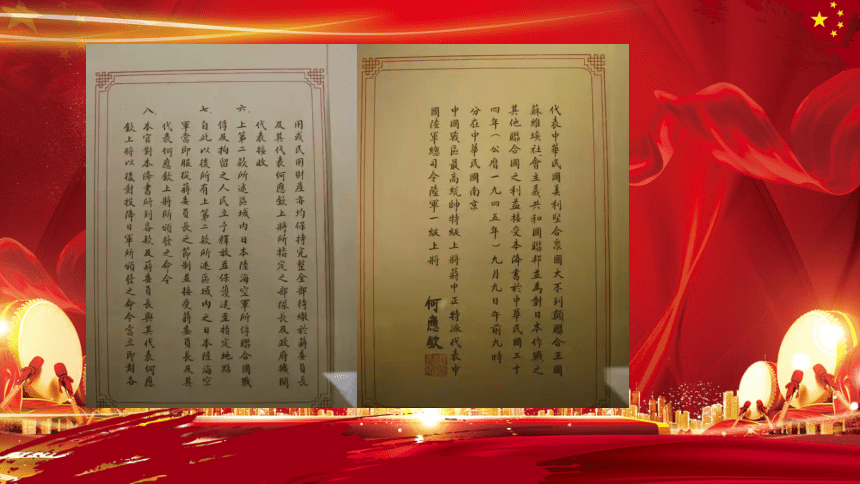 用或民用財產亦均保持完整全部待繳於蔣委員長
及其代表何應欽上將所指定之部隊長及政府機關
代表接收
六、上第二款所述區域內日本陸海空軍所俘聯合國戰
俘及拘留之人民立予釋放並保護送至指定地點
七、自此以後所有上第二款所述區域內之日本陸海空
軍當即服從蔣委員長之節制並接受蔣委員長及其
代表何應欽上將所頒發之命令
八、本官對本降書所列各款及蔣委員長與其代表何應
欽上將以後對投降日軍所頒發之命令當立即對各
代表中華民國美利堅合眾國大不列顛聯合王國
蘇維埃社會主義共和國聯邦並為對日本作戰之
其他聯合國之利益接受本降書於中華民國三十
四年（公曆一九四五年）九月九日午前九時
分在中華民國南京
中國戰區最高統帥特級上將蔣中正特派代表中
國陸軍總司令陸軍一級上將
何應欽